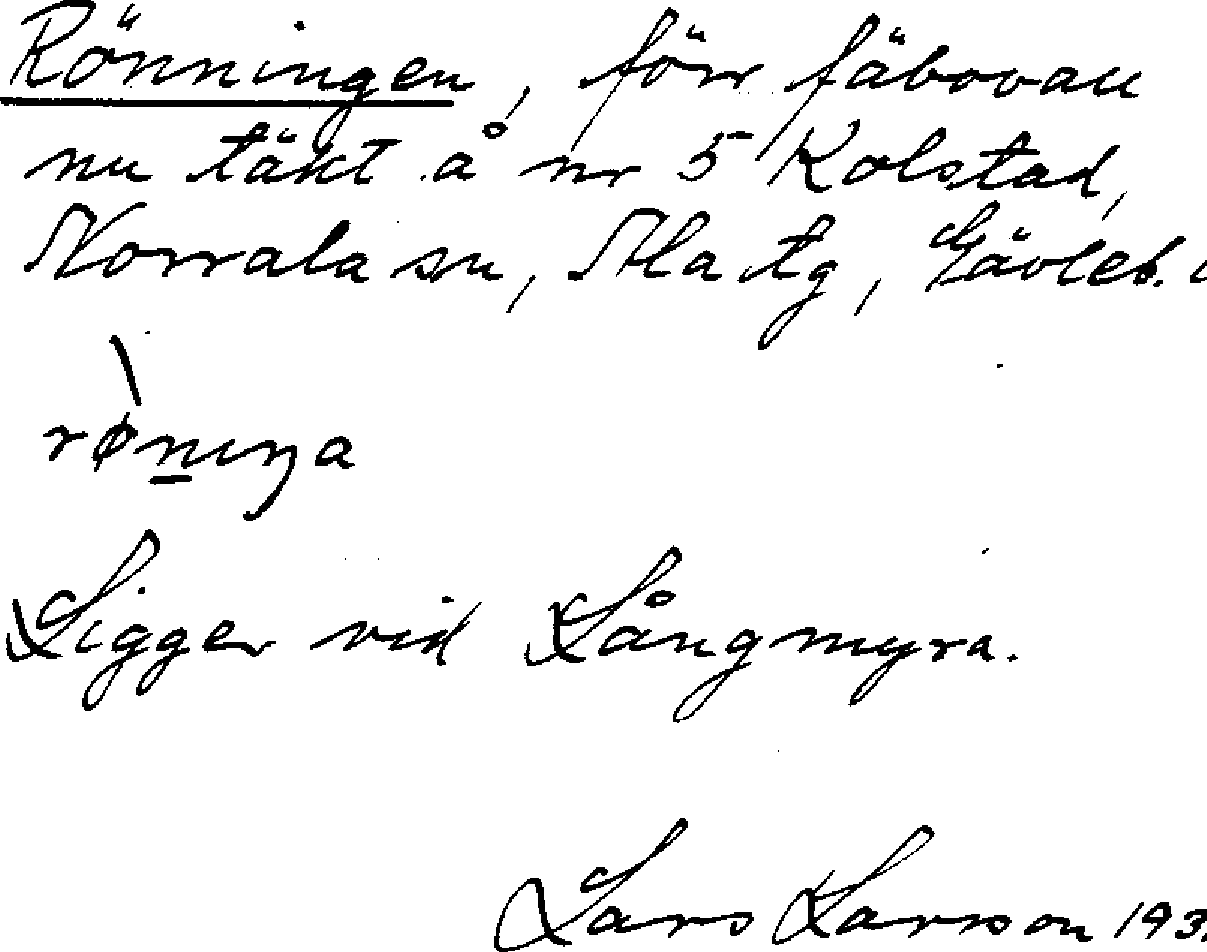 Rönningen, förr fäbovall
nu täkt å nr 5 Kolstad,
Norrala sn, Ala tg, Gävleb.
rø̀nıŋa
Ligger vid Långmyra.
Lars Larsson 193